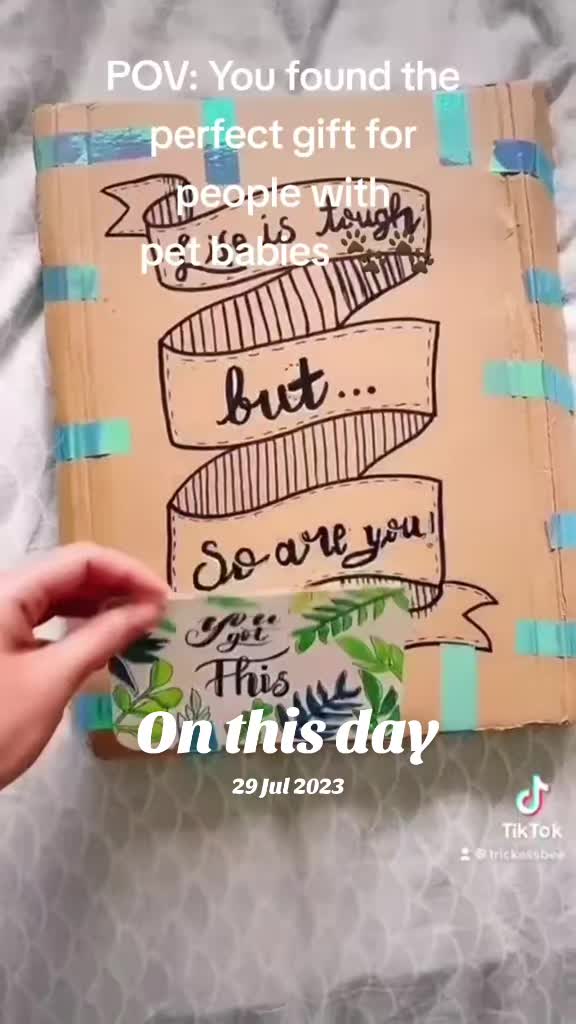 POV: You found the
perfect gift for
people with
pet babies 🐾🐾
Life is tough
but...
So are you!
You've
got
This
On this day
29 Jul 2023
TikTok
@trickassbee